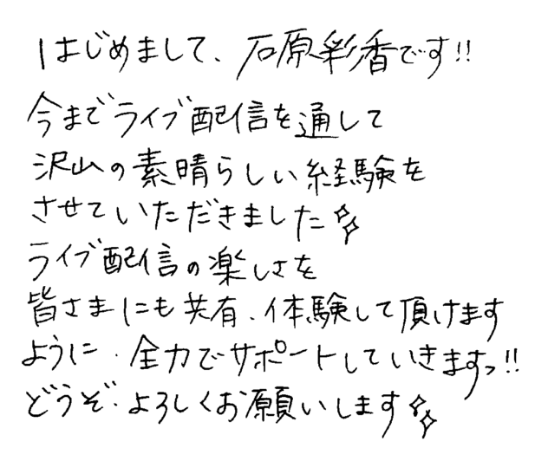 はじめまして、石原彩香です!!
今までライブ配信を通して
沢山の素晴らしい経験を
させていただきました✨
ライブ配信の楽しさを
皆さまにも共有、体験して頂けます
ように、全力でサポートしていきますっ!!
どうぞ、よろしくお願いします✨